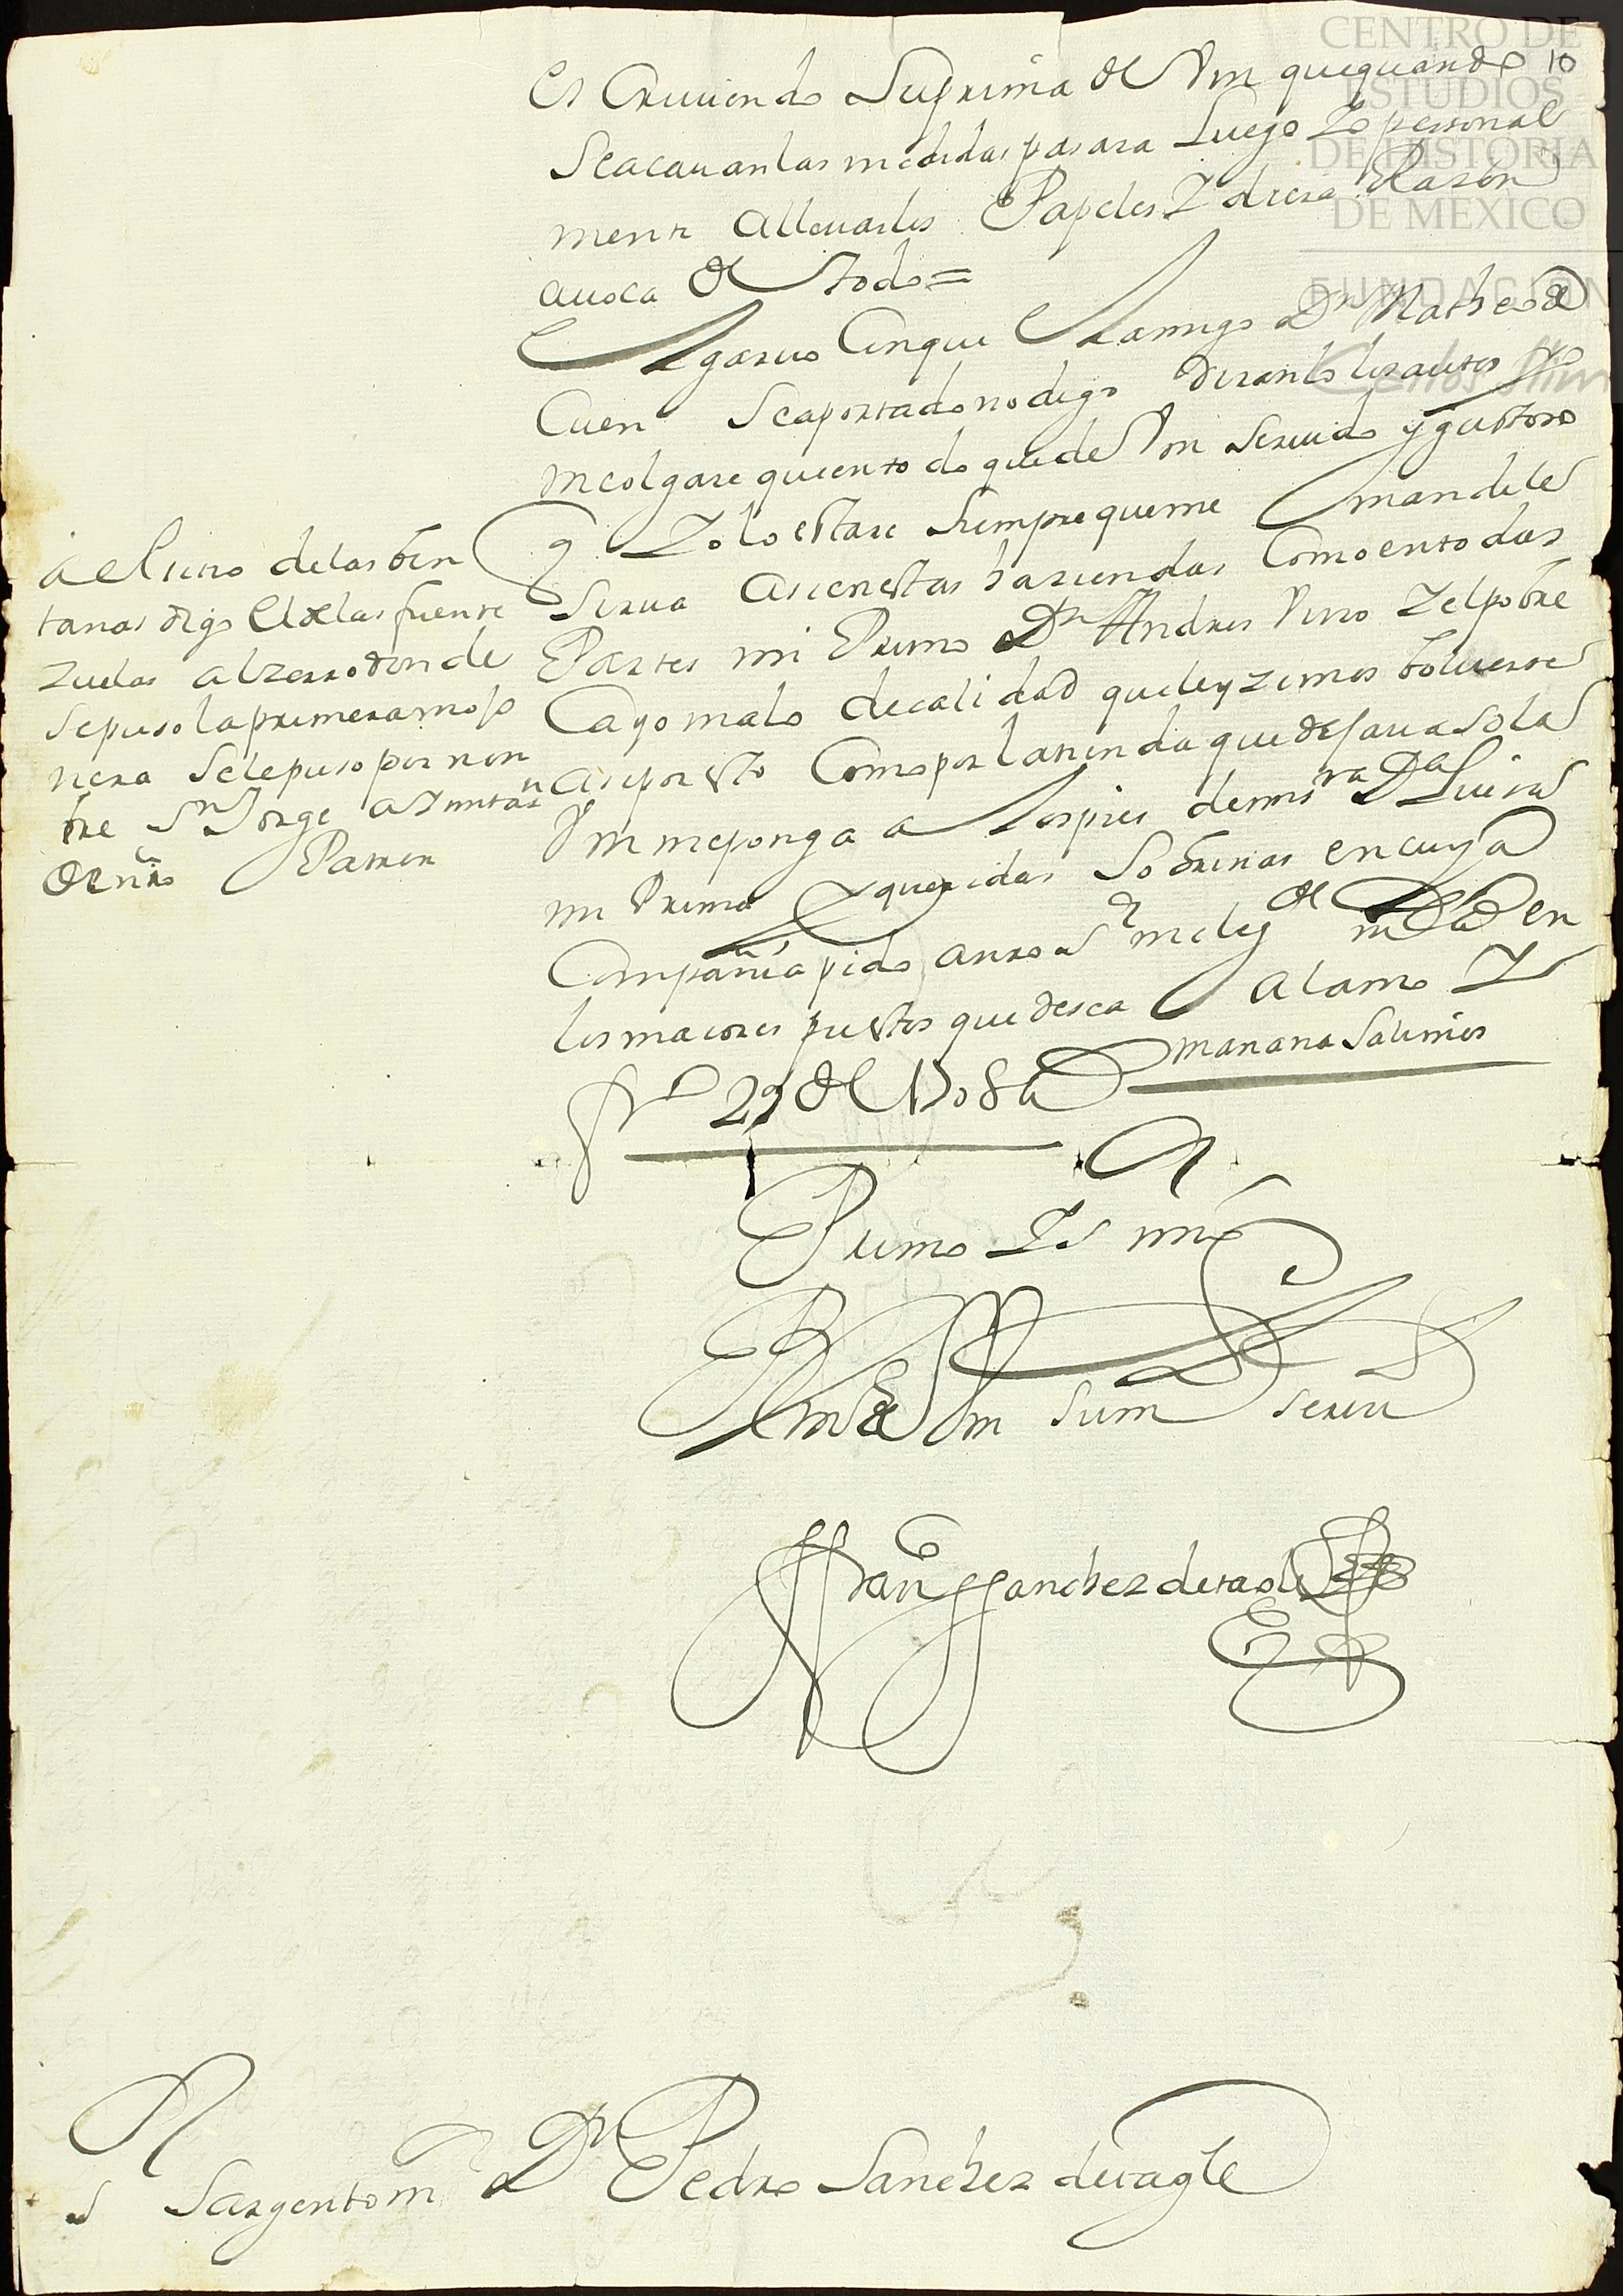 CENTRO DE
ESTUDIOS
DE HISTORIA
DE MEXICO
FUNDACION
10
es Criuiendo Suprima de Vm que quando
Seacauan las medidas pasara Luego Yo personal
mente a lleuarles Papeles Y dar Razon
auoca de todo =
El garuo Conque el amigo Dn Matheo de
Cuen se aportado no digo diranlo los autos Yo
me olgare que en todo quede Vm Seruido y gustoso
q Yo lo estare Siempre que me mande le
Sirua asi en estas haziendas Como en todas
Partes mi Primo Dn Andres Vino Y el pobre
Cayo malo de calidad que le yzimos boluerse
asi por esto Como por la tienda que dejaua sola
Vm me ponga a los pies de mi Sra Da Luisa
mi Prima Y queridas Sobrinas en cuya
Compañia pido a nro Sr me le gde mA en
los maiores puestos que desea Alamo Y
mañana Salimos
29 de 1708 a
a el sitio de las ben
tanas digo el de las fuente
zuelas al zerro donde
se puso la primera mojo
nera se le puso por nom
bre Sn Jorge a Yntitan
de nro Patron
Primo Y S mio
B L M de Vm Su m Seru
Franco Sanchez de tagle
Sr Sargento mr Dn Pedro Sanchez de tagle